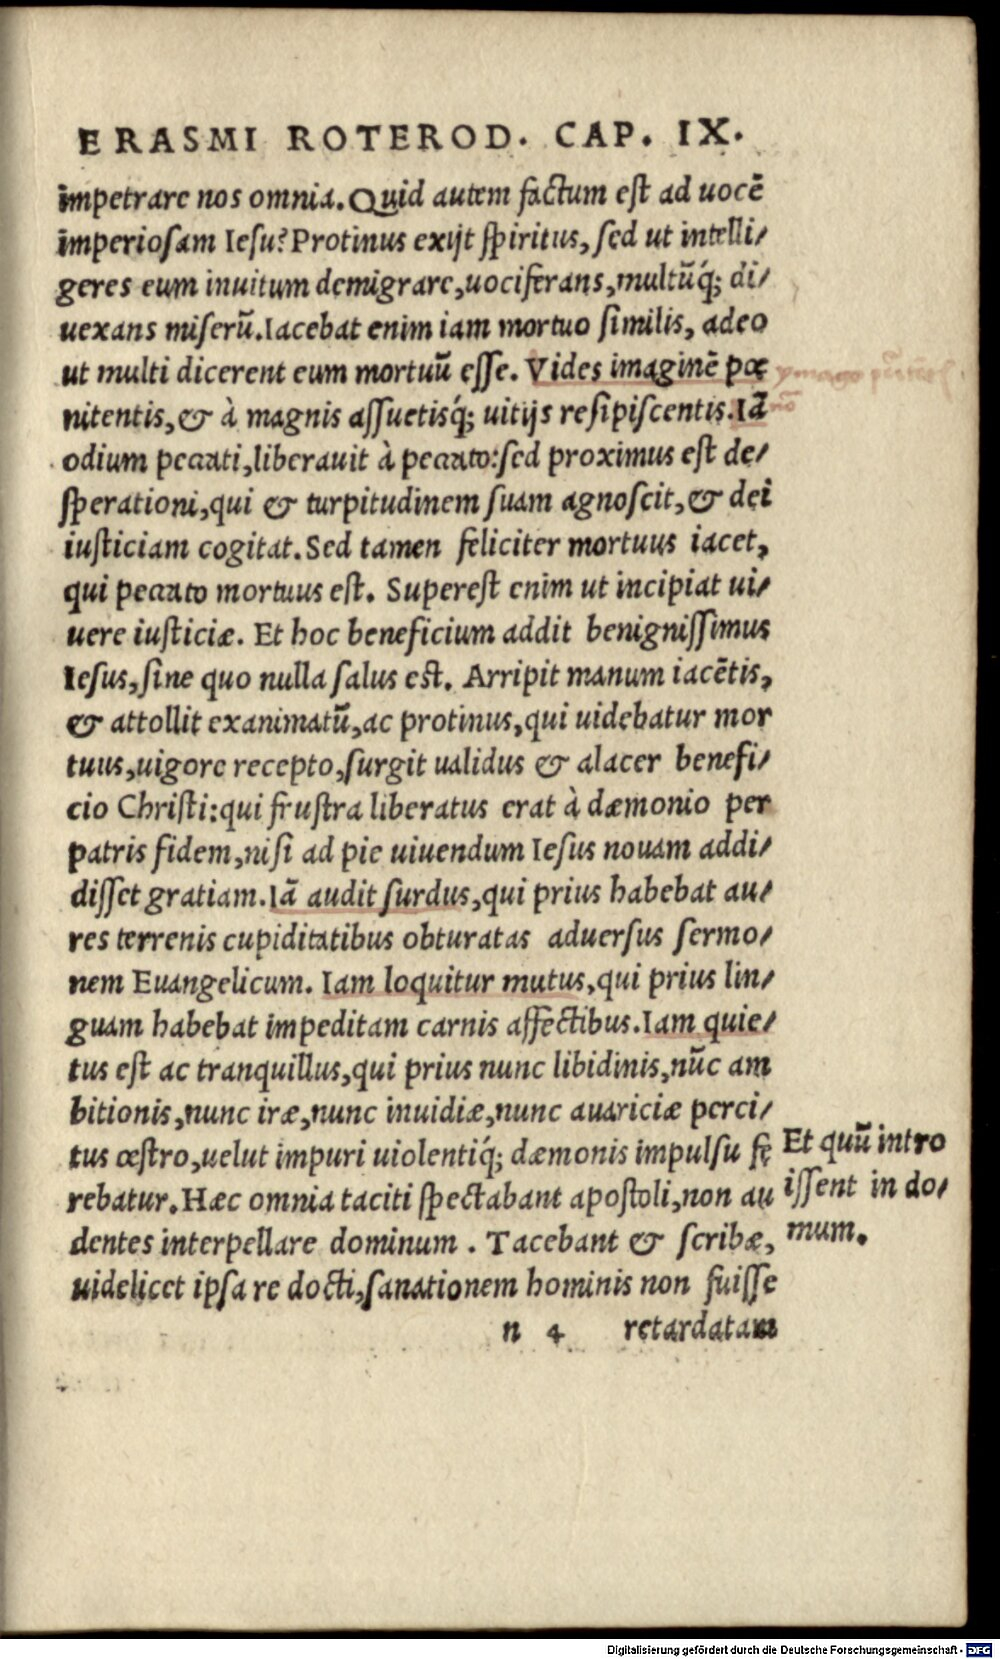 ERASMI ROTEROD. CAP. IX.
īmpetrare nos omnia. Quid autem factum est ad uocē
imperiosam Iesu? Protinus exijt spiritus, sed ut intelli/
geres eum inuitum demigrare, uociferans, multūq́; di/
uexans miserū. Iacebat enim iam mortuo similis, adeo
ut multi dicerent eum mortuū esse. Vides imaginē pœ
nitentis, & à magnis assuetisq́; uitijs resipiscentis. Iā
odium peccati, liberauit à peccato: sed proximus est de/
sperationi, qui & turpitudinem suam agnoscit, & dei
iusticiam cogitat. Sed tamen feliciter mortuus iacet,
qui peccato mortuus est. Superest enim ut incipiat ui/
uere iusticiæ. Et hoc beneficium addit benignissimus
Iesus, sine quo nulla salus est. Arripit manum iacētis,
& attollit exanimatū, ac protinus, qui uidebatur mor
tuus, uigore recepto, surgit ualidus & alacer benefi/
cio Christi: qui frustra liberatus erat à dæmonio per
patris fidem, nisi ad pie uiuendum Iesus nouam addi/
disset gratiam. Iā audit surdus, qui prius habebat au/
res terrenis cupiditatibus obturatas aduersus sermo/
nem Euangelicum. Iam loquitur mutus, qui prius lin/
guam habebat impeditam carnis affectibus. Iam quie/
tus est ac tranquillus, qui prius nunc libidinis, nūc am
bitionis, nunc iræ, nunc inuidiæ, nunc auariciæ perci/
tus œstro, uelut impuri uiolentiq́; dæmonis impulsu fe
rebatur. Hæc omnia taciti spectabant apostoli, non au
dentes interpellare dominum. Tacebant & scribæ,
uidelicet ipsa re docti, sanationem hominis non fuisse
n 4 retardatam
ymago
Et quū intro
issent in do/
mum.
Digitalisierung gefördert durch die Deutsche Forschungsgemeinschaft - DFG